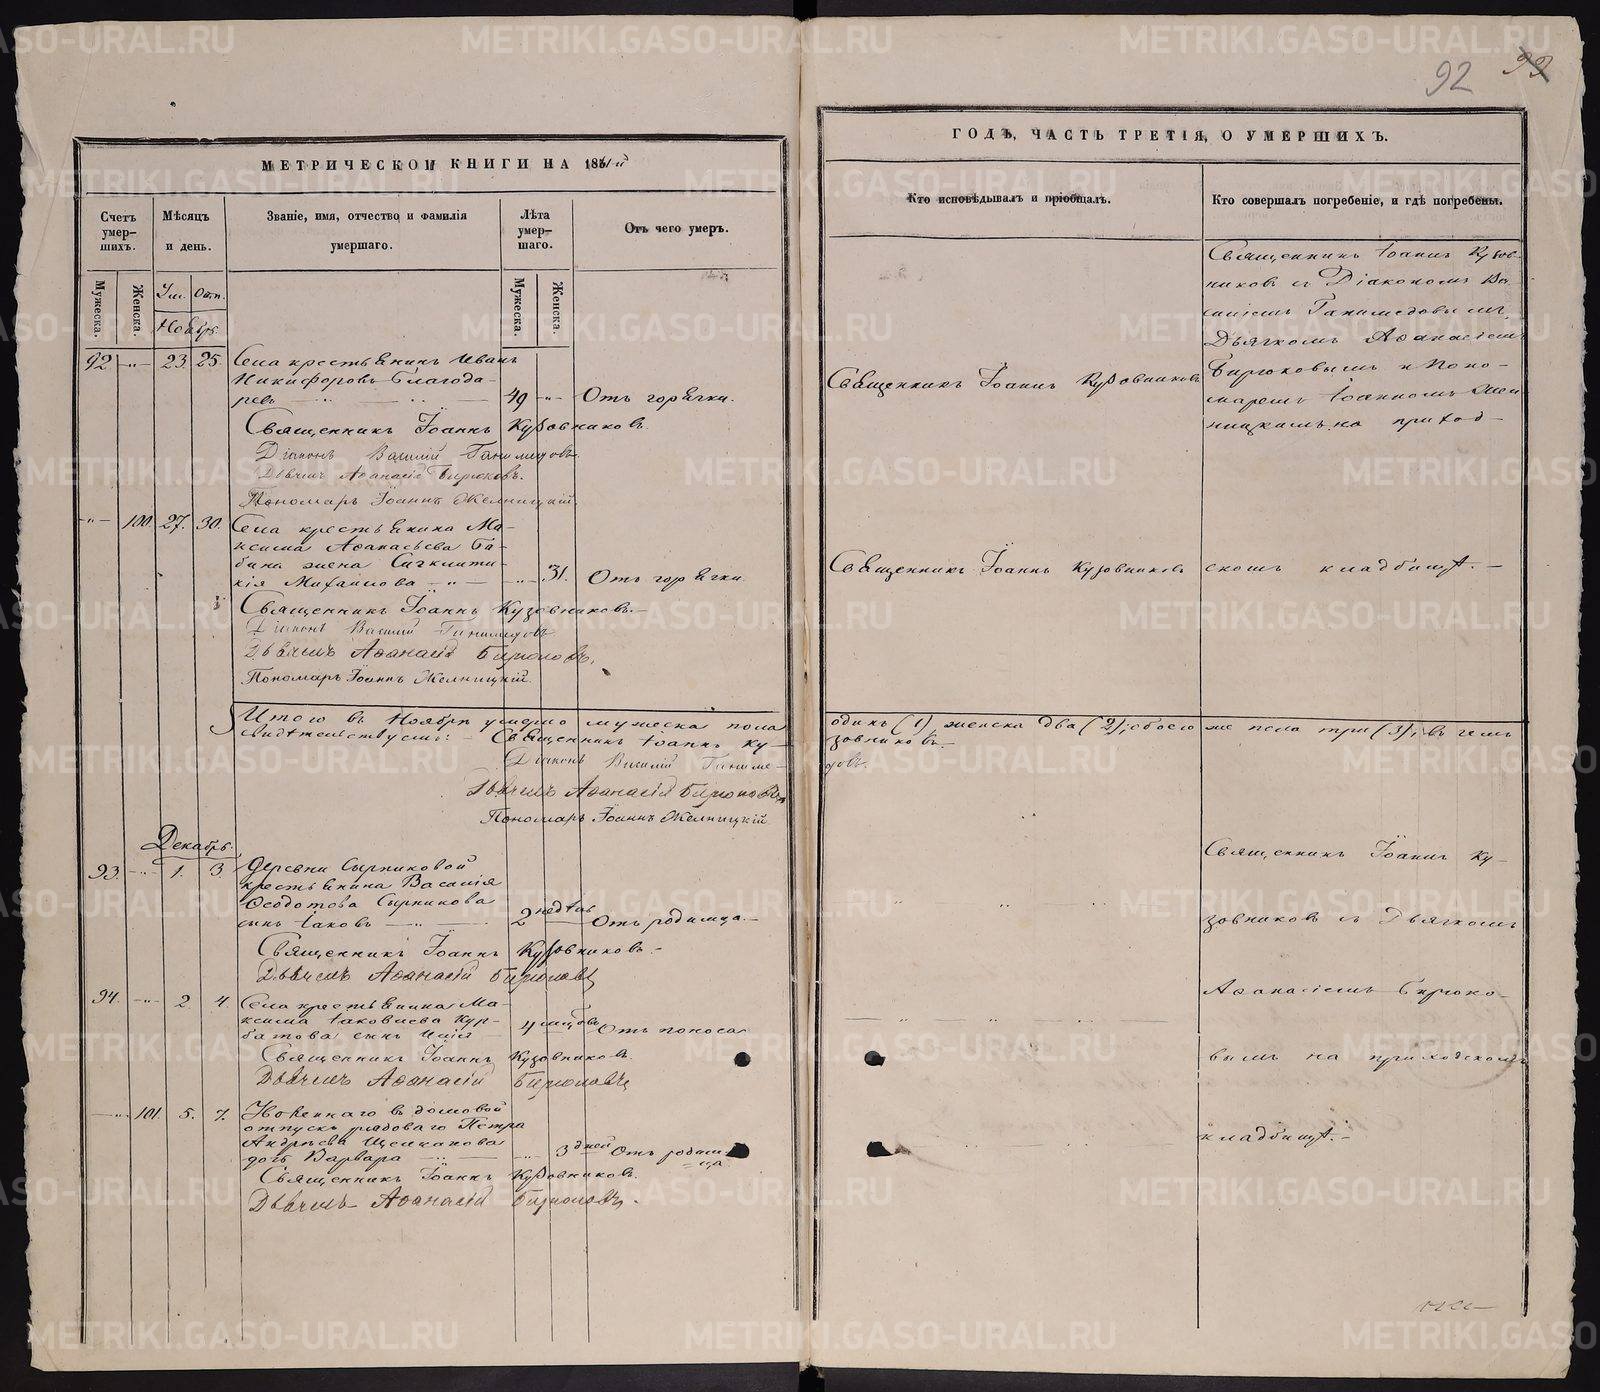 92
93
МЕТРИЧЕСКОЙ КНИГИ НА 1861й
ГОДЪ, ЧАСТЬ ТРЕТІЯ, О УМЕРШИХЪ.
Счетъ умер-шихъ.
Мѣсяцъ и день.
Званіе, имя, отчество и фамилія умершаго.
Лѣта умер-шаго.
Отъ чего умеръ.
Кто исповѣдывалъ и пріобщалъ.
Кто совершалъ погребеніе, и гдѣ погребены.
Мужеска.
Женска.
Ум.
Отп.
Мужеска.
Женска.
Ноябрь.
92 23. 25. Села крестьянинъ Иванъ
Никифоровъ Благода-
ревъ 49 Отъ горячки.
Священникъ Іоаннъ Кузовниковъ.
Діаконъ Василій Ганимедовъ
Дьячекъ Аѳанасій Бирюковъ.
Пономарь Іоаннъ Желницкій.
Священникъ Іоаннъ Кузовниковъ
Священникъ Іоаннъ Кузов-
никовъ съ Діакономъ Ва-
силіемъ Ганимедовымъ,
Дьячкомъ Аѳанасіемъ
Бирюковымъ и Поно-
маремъ Іоанномъ Жел-
ницкимъ на приход-
100. 27. 30. Села крестьянина Ма-
ксима Аѳанасьева Ба-
бина жена Сигклити-
кія Михайлова 31. Отъ горячки
Священникъ Іоаннъ Кузовниковъ.
Діаконъ Василій Ганимедовъ
Дьячекъ Аѳанасій Бирюковъ,
Пономарь Іоаннъ Желницкій.
Священникъ Іоаннъ Кузовниковъ
скомъ кладбищѣ.
Итого въ Ноябрѣ умерло мужеска пола одинъ (1) женска два (2); обоего же пола три (3); въ чемъ
свидѣтельствуемъ: Священникъ Іоаннъ Кузовниковъ.
Діаконъ Василій Ганимедовъ.
Дьячекъ Аѳанасій Бирюковъ
Пономарь Іоаннъ Желницкій
Декабрь.
93. 1. 3. Деревни Сырниковой
крестьянина Василія
Ѳеодотова Сырникова
сынъ Іаковъ 2 недѣль Отъ родимца.
Священникъ Іоаннъ Кузовниковъ.
Дьячекъ Аѳанасій Бирюковъ
Священникъ Іоаннъ Ку-
зовниковъ съ Дьячкомъ
Аѳанасіемъ Бирюко-
вымъ на приходскомъ
кладбищѣ.
94. 2 4. Села крестьянина Ма-
ксима Іаковлева Кур-
батова сынъ 4 мѣсцовъ Отъ поноса
Священникъ Іоаннъ Кузовниковъ.
Дьячекъ Аѳанасій Бирюковъ
101. 5. 7. въ домовой
отпускъ рядоваго Петра
Андреева
дочь Варвара 3 дней Отъ родим-
ца.
Священникъ Іоаннъ Кузовниковъ.
Дьячекъ Аѳанасій Бирюковъ.
METRIKI.GASO-URAL.RU